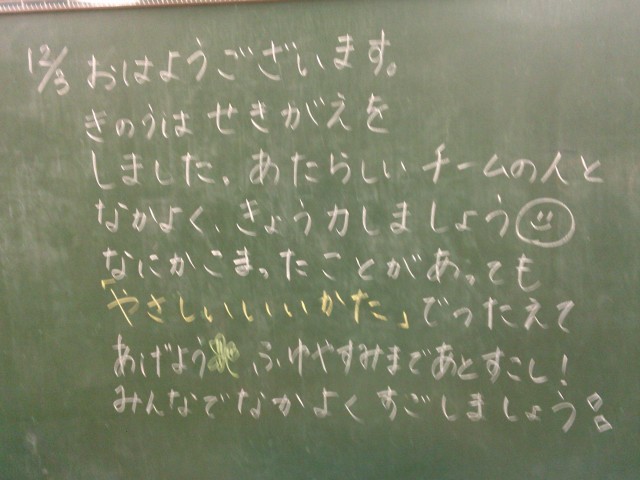 12/3 おはようございます。
きのうは せきがえを
しました。あたらしい チームの人と
なかよく、きょう力しましょう
なにかこまったことがあっても
「やさしいいいかた」でつたえて
あげよう 、ふゆやすみまであとすこし!
みんなでなかよくすごしましょう